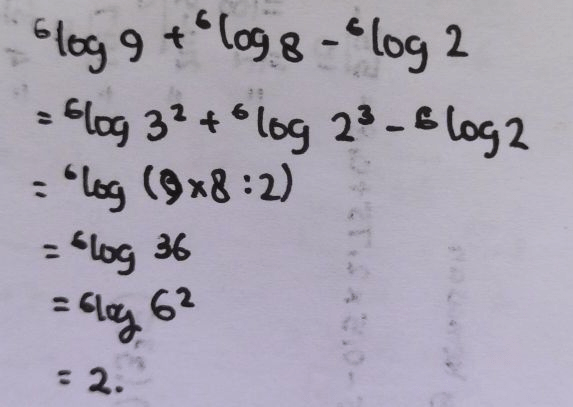 ⁶log 9 + ⁶log 8 - ⁶log 2
= ⁶log 3² + ⁶log 2³ - ⁶log 2
= ⁶log (9 x 8 : 2)
= ⁶log 36
= ⁶log 6²
= 2.